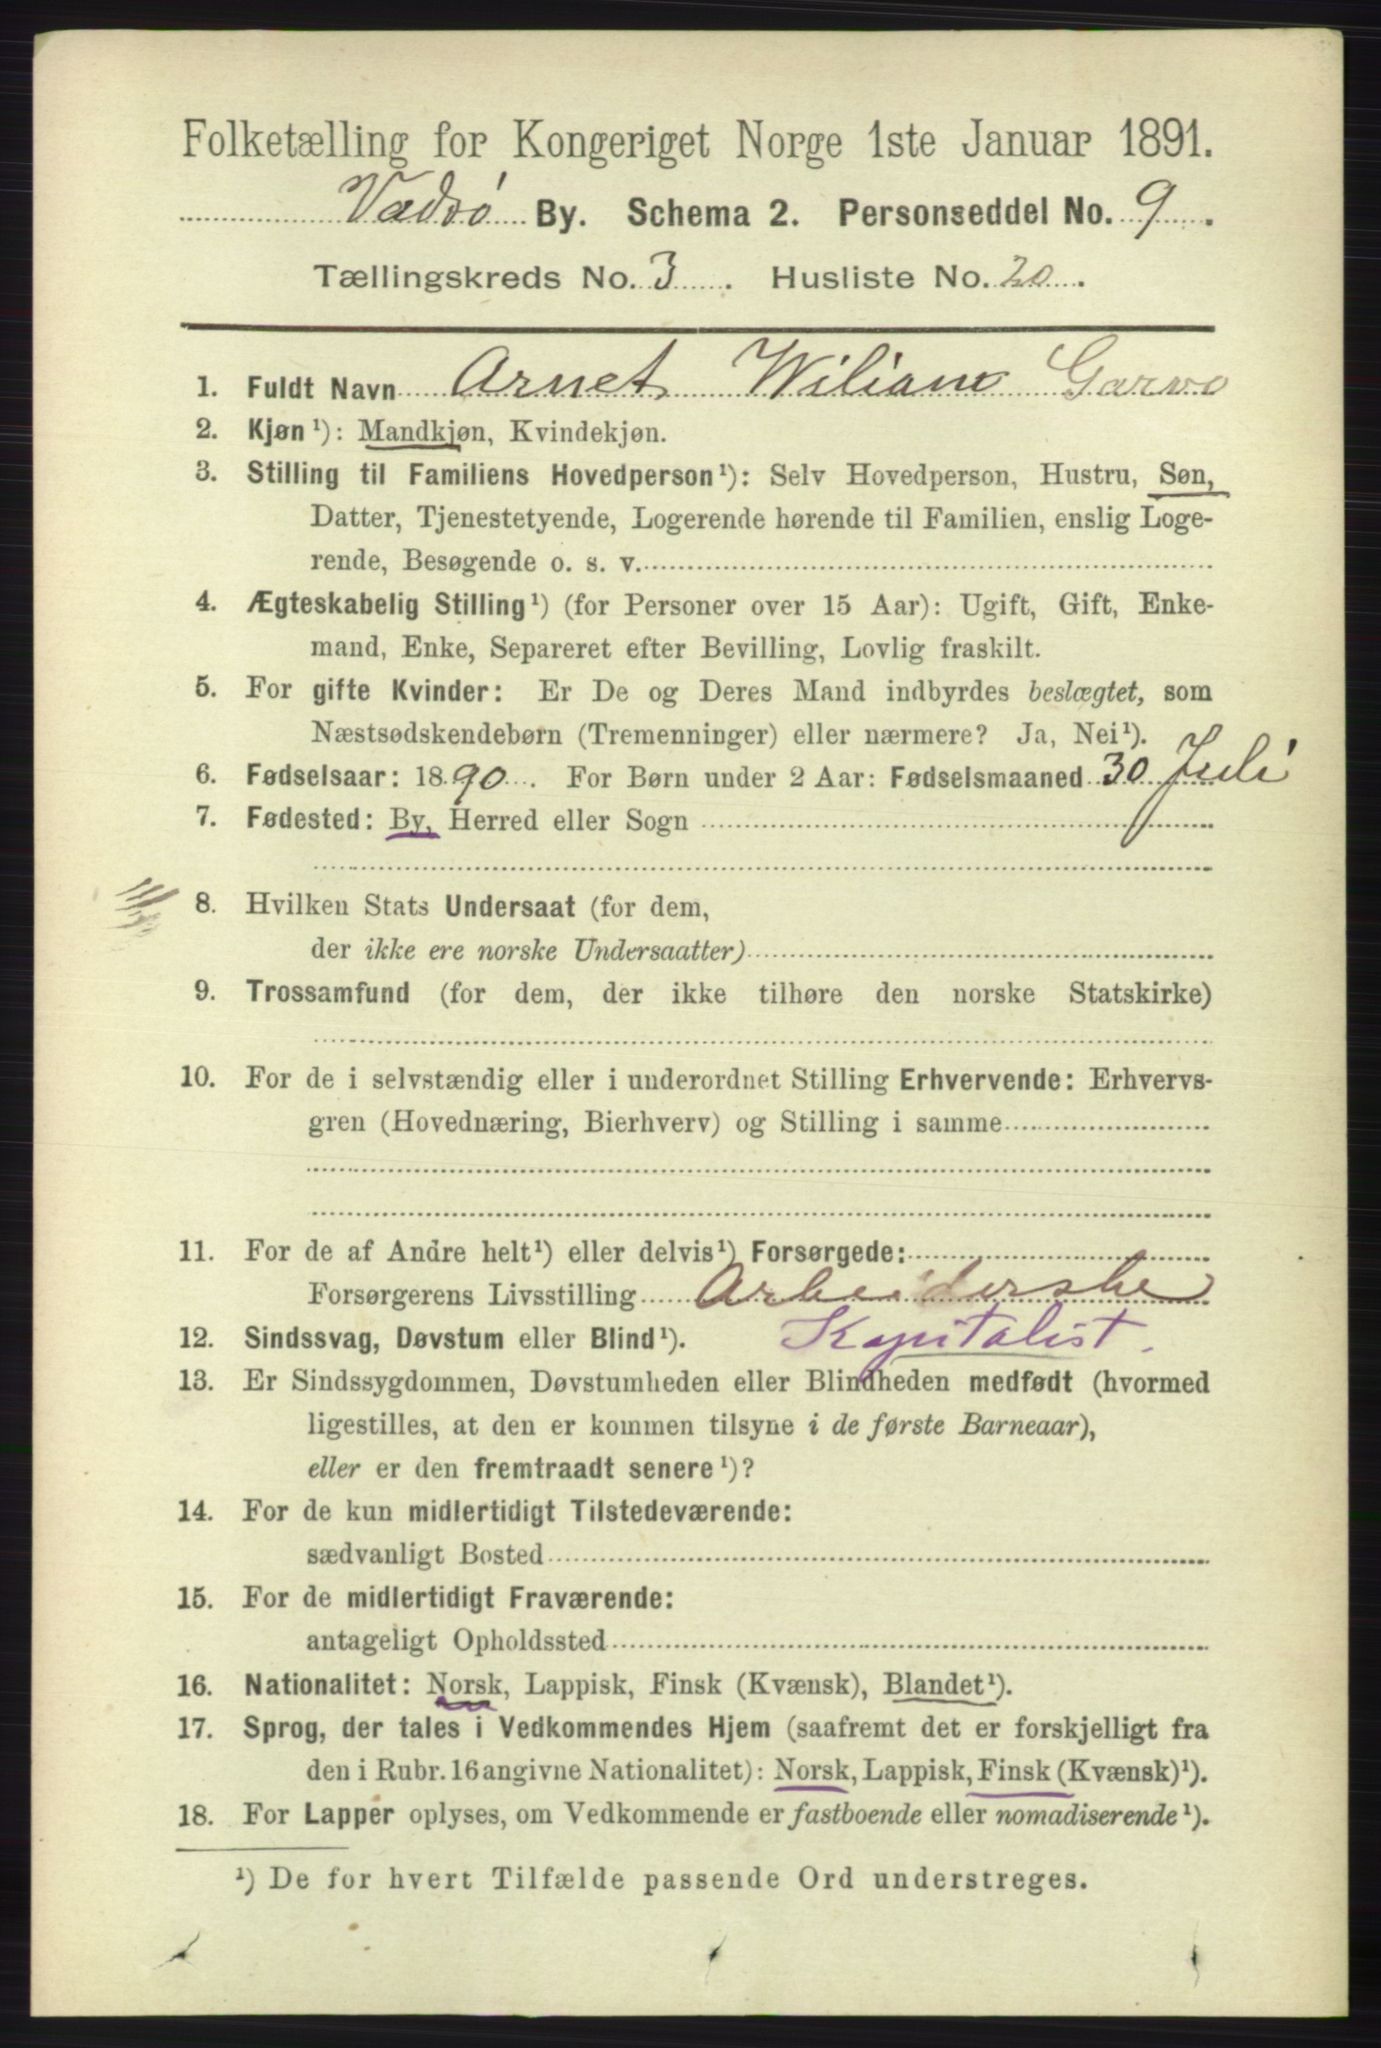 Folketælling for Kongeriget Norge 1ste Januar 1891.
Vadsø By. Schema 2. Personseddel No. 9.
Tællingskreds No. 3. Husliste No. 20.
1. Fuldt Navn Arnet Wiliam Garvo
2. Kjøn¹): Mandkjøn, Kvindekjøn.
3. Stilling til Familiens Hovedperson¹): Selv Hovedperson, Hustru, Søn,
Datter, Tjenestetyende, Logerende hørende til Familien, enslig Loge-
rende, Besøgende o. s. v.
4. Ægteskabelig Stilling¹) (for Personer over 15 Aar): Ugift, Gift, Enke-
mand, Enke, Separeret efter Bevilling, Lovlig fraskilt.
5. For gifte Kvinder: Er De og Deres Mand indbyrdes beslægtet, som
Næstsødskendebørn (Tremenninger) eller nærmere? Ja, Nei¹).
6. Fødselsaar: 1890. For Børn under 2 Aar: Fødselsmaaned 30 Juli
7. Fødested: By, Herred eller Sogn
8. Hvilken Stats Undersaat (for dem,
der ikke ere norske Undersaatter)
9. Trossamfund (for dem, der ikke tilhøre den norske Statskirke)
10. For de i selvstændig eller i underordnet Stilling Erhvervende: Erhvervs-
gren (Hovednæring, Bierhverv) og Stilling i samme
11. For de af Andre helt¹) eller delvis¹) Forsørgede:
Forsørgerens Livsstilling Arbeiderske
12. Sindssvag, Døvstum eller Blind¹). Kapitalist.
13. Er Sindssygdommen, Døvstumheden eller Blindheden medfødt (hvormed
ligestilles, at den er kommen tilsyne i de første Barneaar),
eller er den fremtraadt senere¹)?
14. For de kun midlertidigt Tilstedeværende:
sædvanligt Bosted
15. For de midlertidigt Fraværende:
antageligt Opholdssted
16. Nationalitet: Norsk, Lappisk, Finsk (Kvænsk), Blandet¹).
17. Sprog, der tales i Vedkommendes Hjem (saafremt det er forskjelligt fra
den i Rubr. 16 angivne Nationalitet): Norsk, Lappisk, Finsk (Kvænsk)¹).
18. For Lapper oplyses, om Vedkommende er fastboende eller nomadiserende¹).
¹) De for hvert Tilfælde passende Ord understreges.